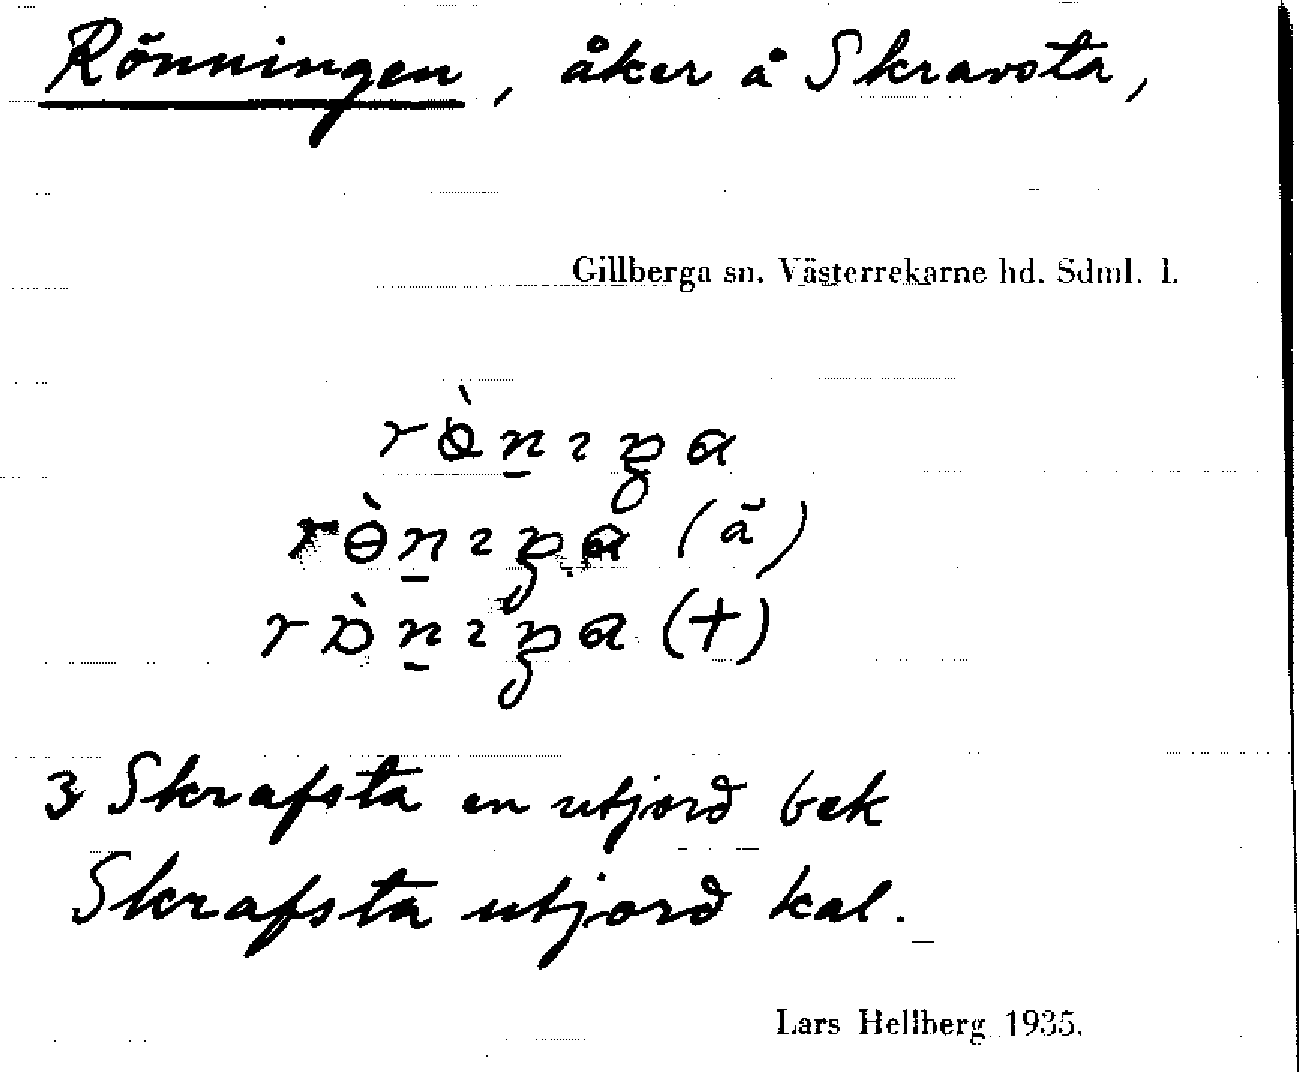 Rönningen, åker å Skravsta,
Gillberga sn. Västerrekarne hd. Södml. l.
(ã)
(+)
3 Skrafsta en utjord bek
Skrafsta utjord kal.
Lars Hellberg 1935.